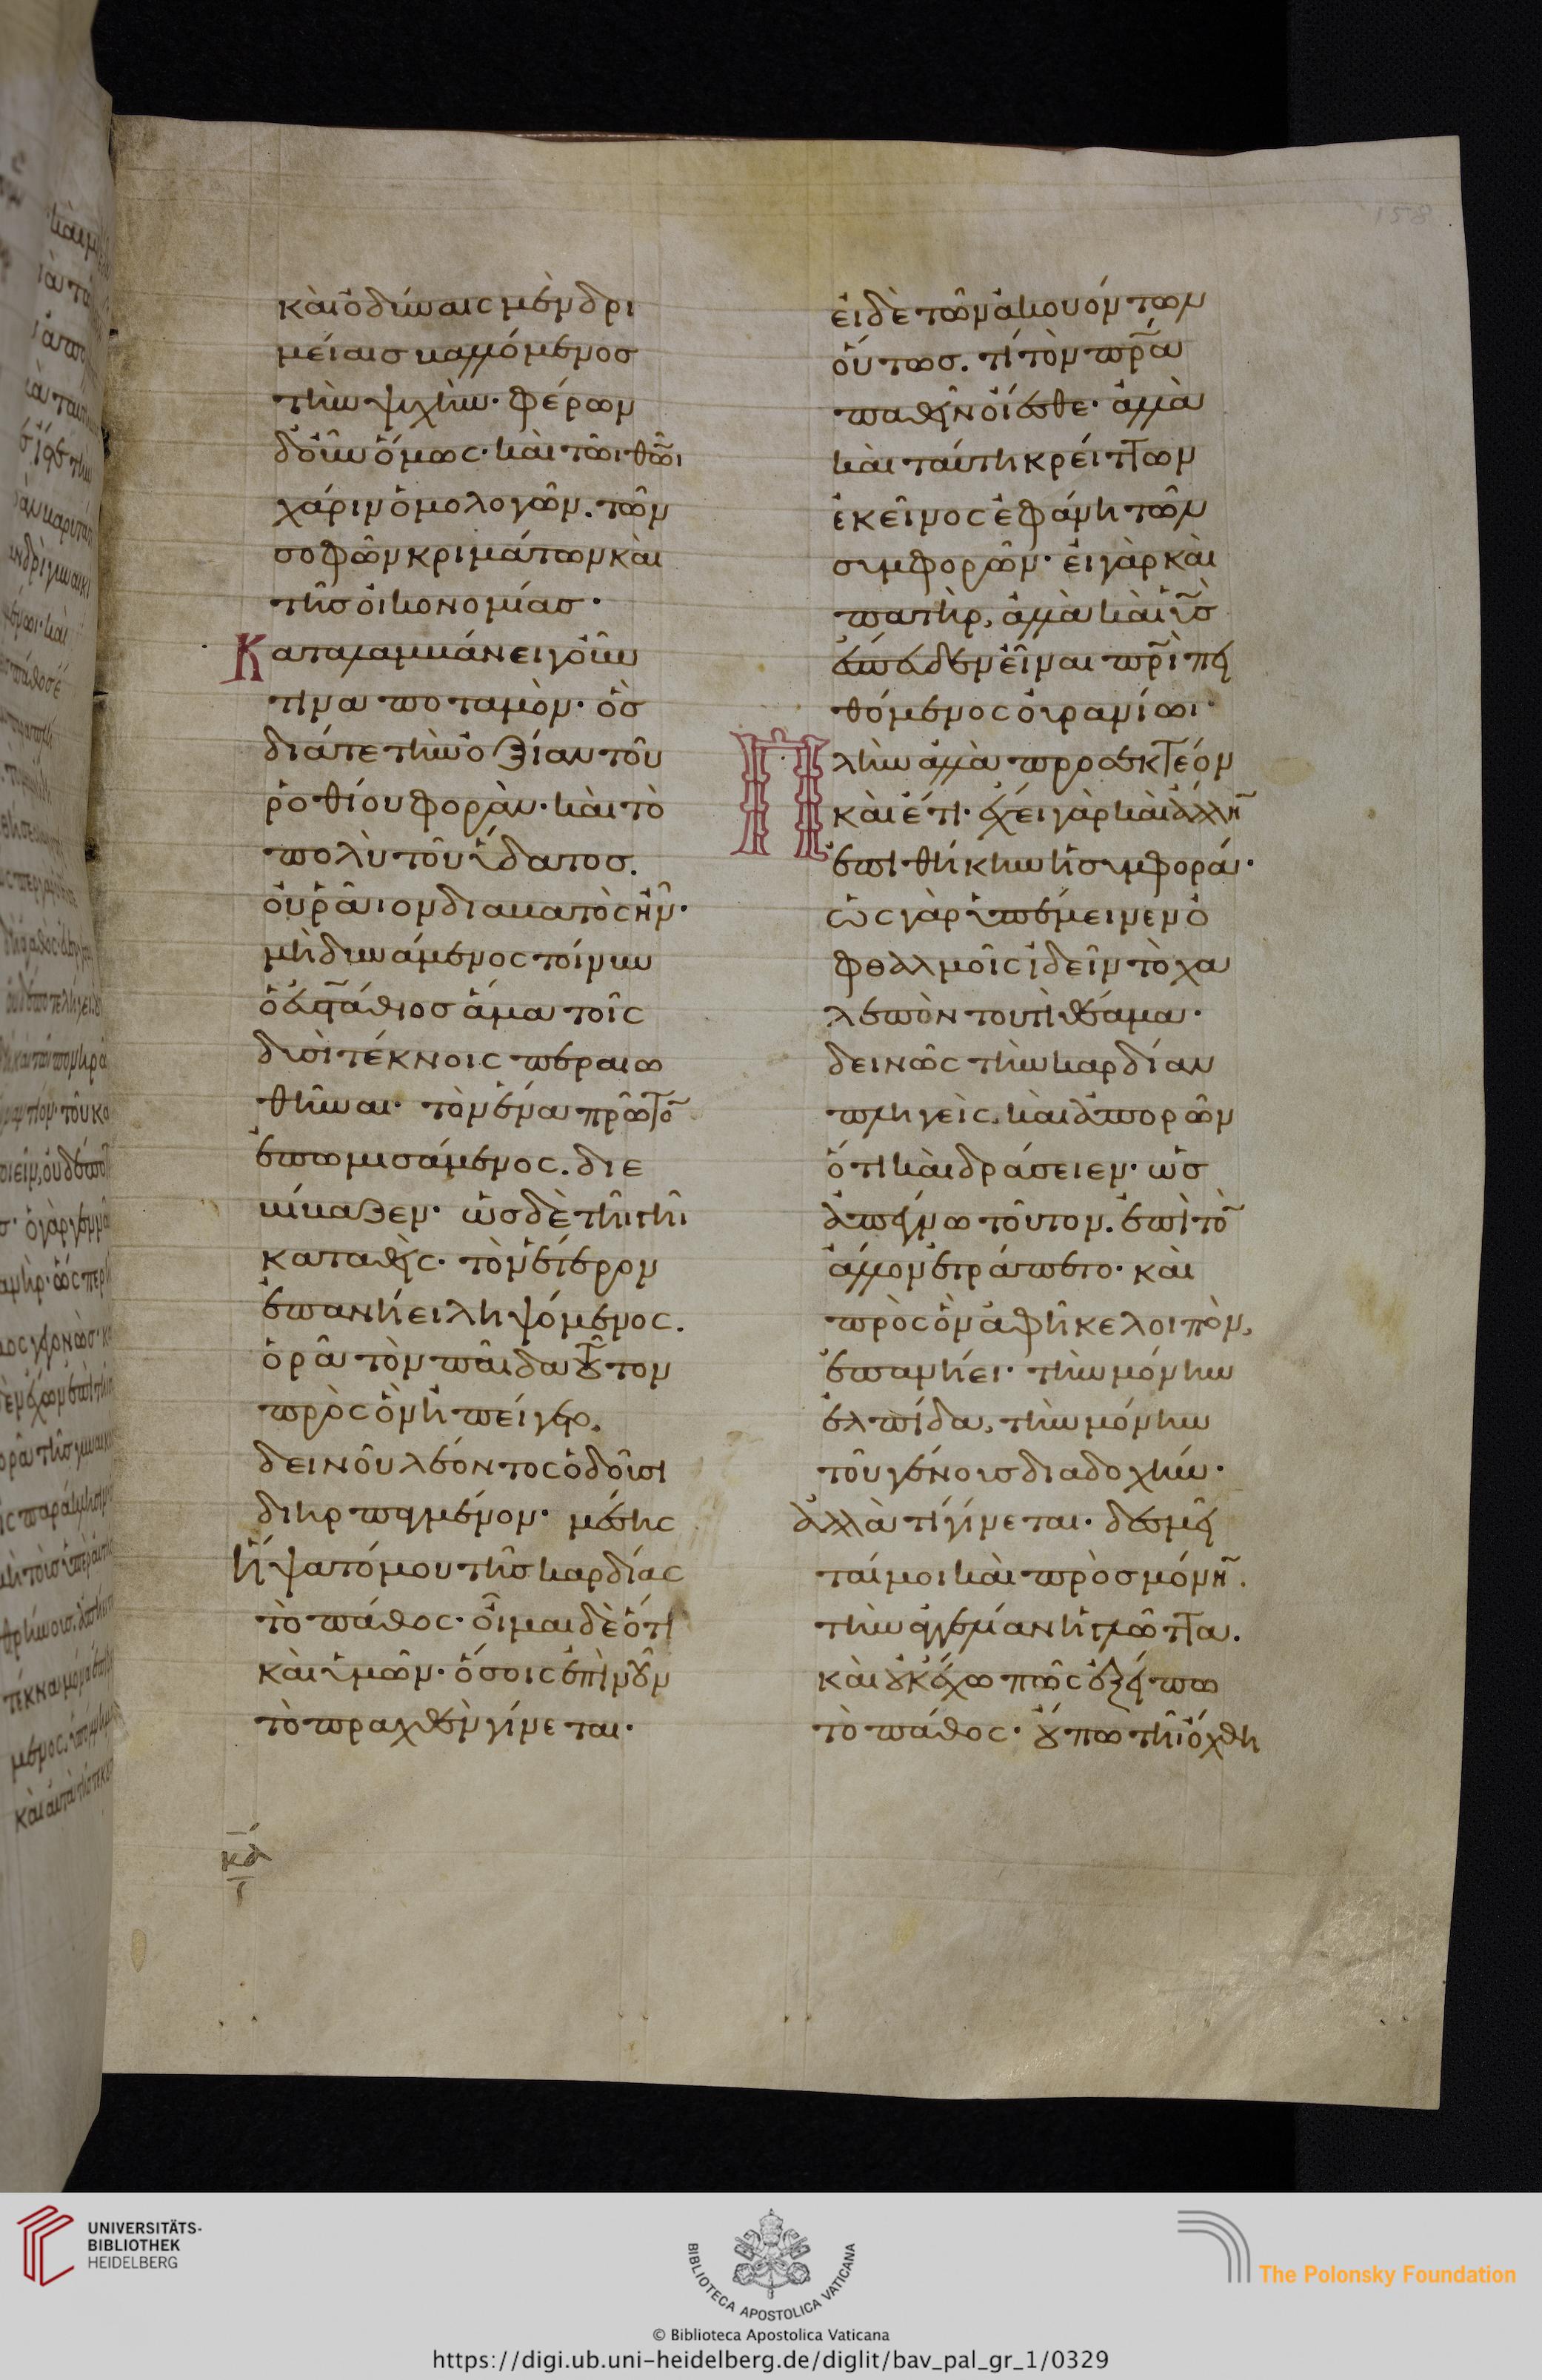 καὶ ὀδύναις μὲν δρι
μείαις βαλλόμενος
τὴν ψυχήν· φέρων
δ' οὖν ὅμως· καὶ τῶι θ̅ῶι
χάριν ὁμολογῶν. τῶν
σοφῶν κριμάτων καὶ
τῆς οἰκονομίας·
Καταλαμβάνει γοῦν
τινα ποταμόν· ὃς
διά τε τὴν ὀξίαν τοῦ
ῥοθίου φορὰν· καὶ τὸ
πολὺ τοῦ ὕδατος.
οὐ ῥᾶιον διαβατὸς ἦν·
μὴ δυνάμενος τοίνυν
ὁ εὐστάθιος ἅμα τοῖς
δυσὶ τέκνοις περαιω
θῆναι· τὸν ἕνα πρῶτο̅
ἐπωμισάμενος. διε
βίβαζεν· ὡς δὲ τῆι γῆι
καταθεὶς· τὸν ἕτερον
ἐπανήει ληψόμενος.
ὁρᾶ τὸν παῖδα τοῦτον
πρὸς ὃν ἠπείγετο,
δεινοῦ λέοντος
μέσης
ἥψατό μου τῆς καρδίας
τὸ πάθος· οἶμαι δὲ ὅτι
καὶ ὑμῶν· ὅσοις ἐπὶ νοῦν
τὸ πραχθὲν γίνεται·
κα
εἰ δὲ τῶν ἀκουόντων
οὕτως. τί τὸν π̅ρ̅α
παθεῖν οἴεσθε· ἀλλὰ
καὶ ταύτη κρείττων
ἐκεῖνος ἐφάνη τῶν
συμφορῶν· εἰ γὰρ καὶ
πατὴρ, ἀλλὰ καὶ υ̅ὸ̅ς
ἔσπευδεν εἶναι π̅ρ̅ι πει
θόμενος οὐρανίωι·
Πλὴν ἀλλὰ προσεκτέον
καὶ ἔτι· ἔχει γὰρ καὶ ἄλλη̅
ἐπιθήκην ἡ συμφορά·
ὡς γὰρ ὑπέμεινεν ὀ
φθαλμοῖς ἰδεῖν τὸ χα
λεπὸν τουτὶ θέαμα·
δεινῶς τὴν καρδίαν
πληγεὶς, καὶ ἀπορῶν
ὅτι καὶ δράσειεν· ὡς
ἀπέγνω τοῦτον. ἐπὶ τὸ̅
ἄλλον ἐτράπετο· καὶ
πρὸς ὃν ἀφῆκε λοιπὸν,
ἐπανήει· τὴν μόνην
ἐλπίδα, τὴν μόνην
τοῦ γένους διαδοχήν·
Ἀλλὰ τί γίνεται· δεσμεῖ
ταί μοι καὶ πρὸς μόνη̅.
τὴν ἡ γλῶττα.
καὶ οὐκ ἔχω πῶς ἐξείπω
τὸ πάθος· οὔπω τῆι ὄχθη
158
UNIVERSITÄTS-
BIBLIOTHEK
HEIDELBERG
BIBLIOTECA APOSTOLICA VATICANA
The Polonsky Foundation
© Biblioteca Apostolica Vaticana
https://digi.ub.uni-heidelberg.de/diglit/bav_pal_gr_1/0329